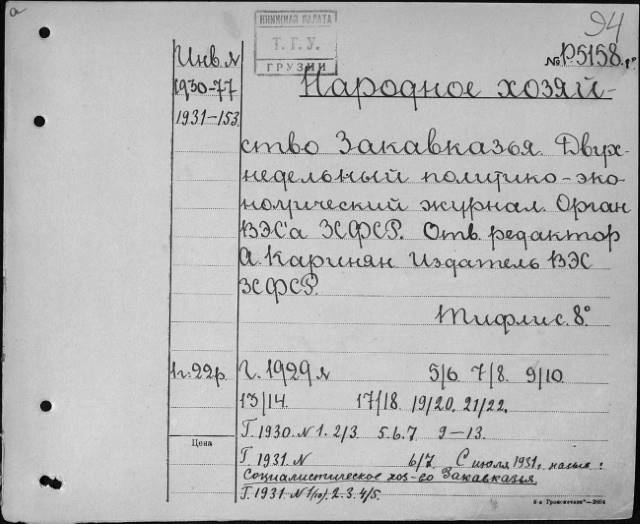 a
94
КНИЖНАЯ ПАЛАТА
Т. Г. У.
ГРУЗИИ
№ Р5158.
Инв. №
1930-77
1931-153
Народное хозяй-
ство Закавказья. Двух-
недельный политико-эко-
номический журнал. Орган
ВЭС'а ЗСФСР. Отв. редактор
А. Каринян Издатель ВЭС
ЗСФСР.
Тифлис. 8°
1 г. 22 р.
Г. 1929 № 5/6 7/8. 9/10
13/14. 17/18. 19/20. 21/22.
Г. 1930. № 1. 2/3. 5.6.7 9—13.
Цена
Г. 1931. № 6/7. С июля 1931 г. назыв:
Социалистическое хоз-во Закавказья
Г. 1931. № 1(10). 2-3. 4/5.